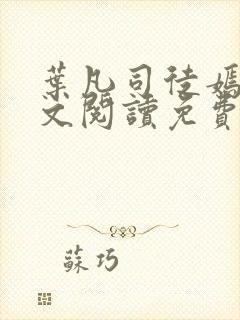 葉凡司徒嫣
文閱讀免費
蘇巧